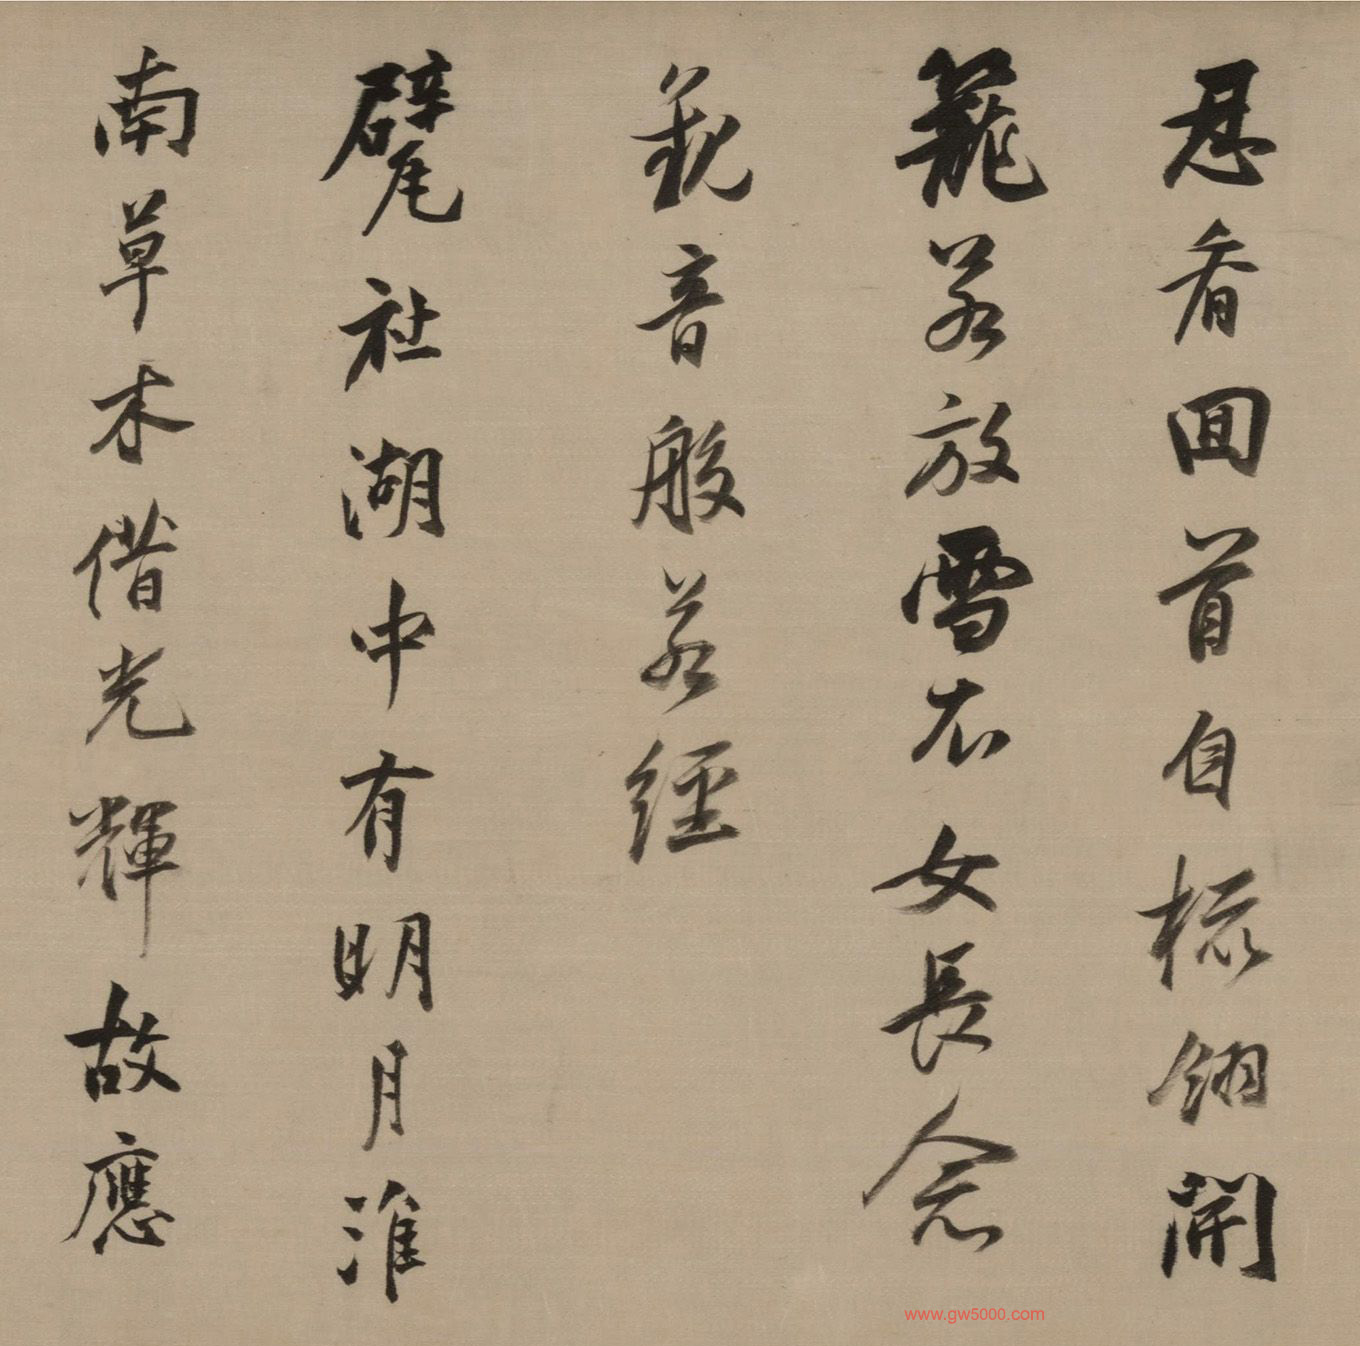 忍看回首自梳翎開
籠若放雪衣女長念
觀音般若經
甓社湖中有明月淮
南草木借光輝故應
www.gw5000.com